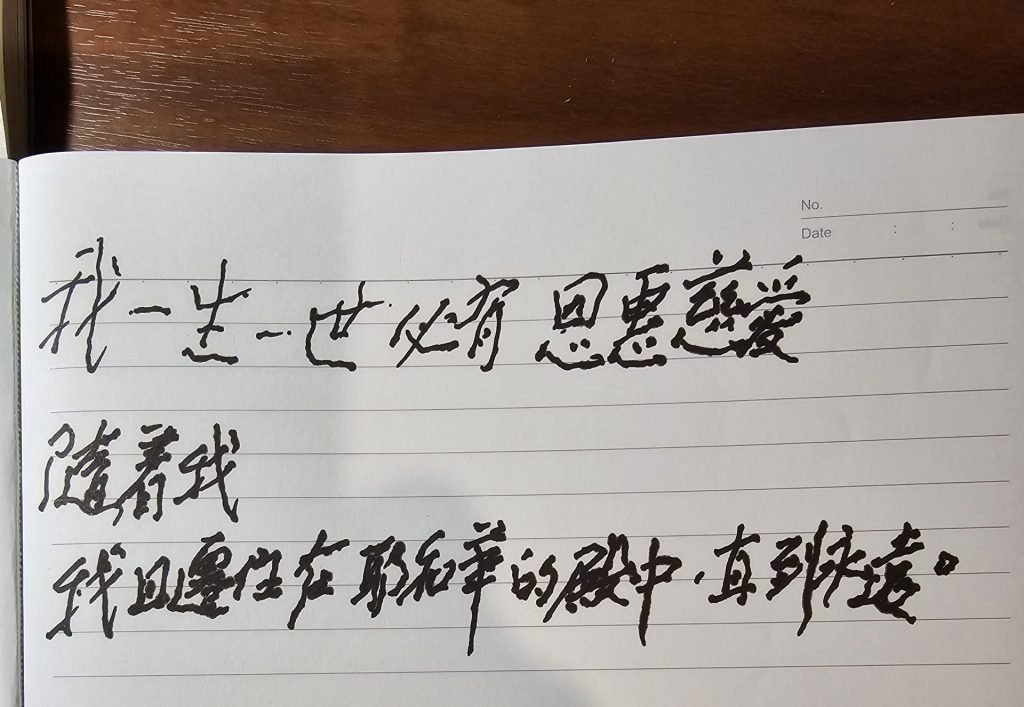 No.
Date : :
我一生一世必有恩惠慈愛
隨著我
我且遷住在耶和華的殿中，直到永遠。